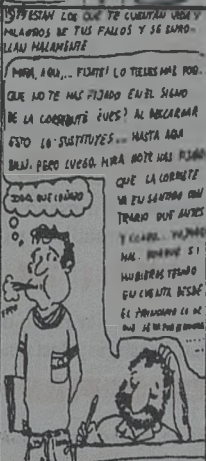 ESTÁN LOS QUE TE CUENTAN VIDA Y
MILAGROS DE TUS FALLOS Y SE ENRO-
LLAN MALAMENTE
¡MIRA, AQUI,.. FIJATE! LO TIENES MAL POR-
QUE NO TE HAS FIJADO EN EL SIGNO
DE LA CORRIENTE ¿VES? AL DESCARGAR
ESTO LO SUSTITUYES... HASTA AQUI
BIEN. PERO LUEGO, MIRA NO TE HAS FIJADO
QUE LA CORRIENTE
VA EN SENTIDO CON
TRARIO QUE ANTES
Y CLARO..
MAL. SI
HUBIERAS TENIDO
EN CUENTA DESDE
EL PRINCIPIO LO DE
QUE SE